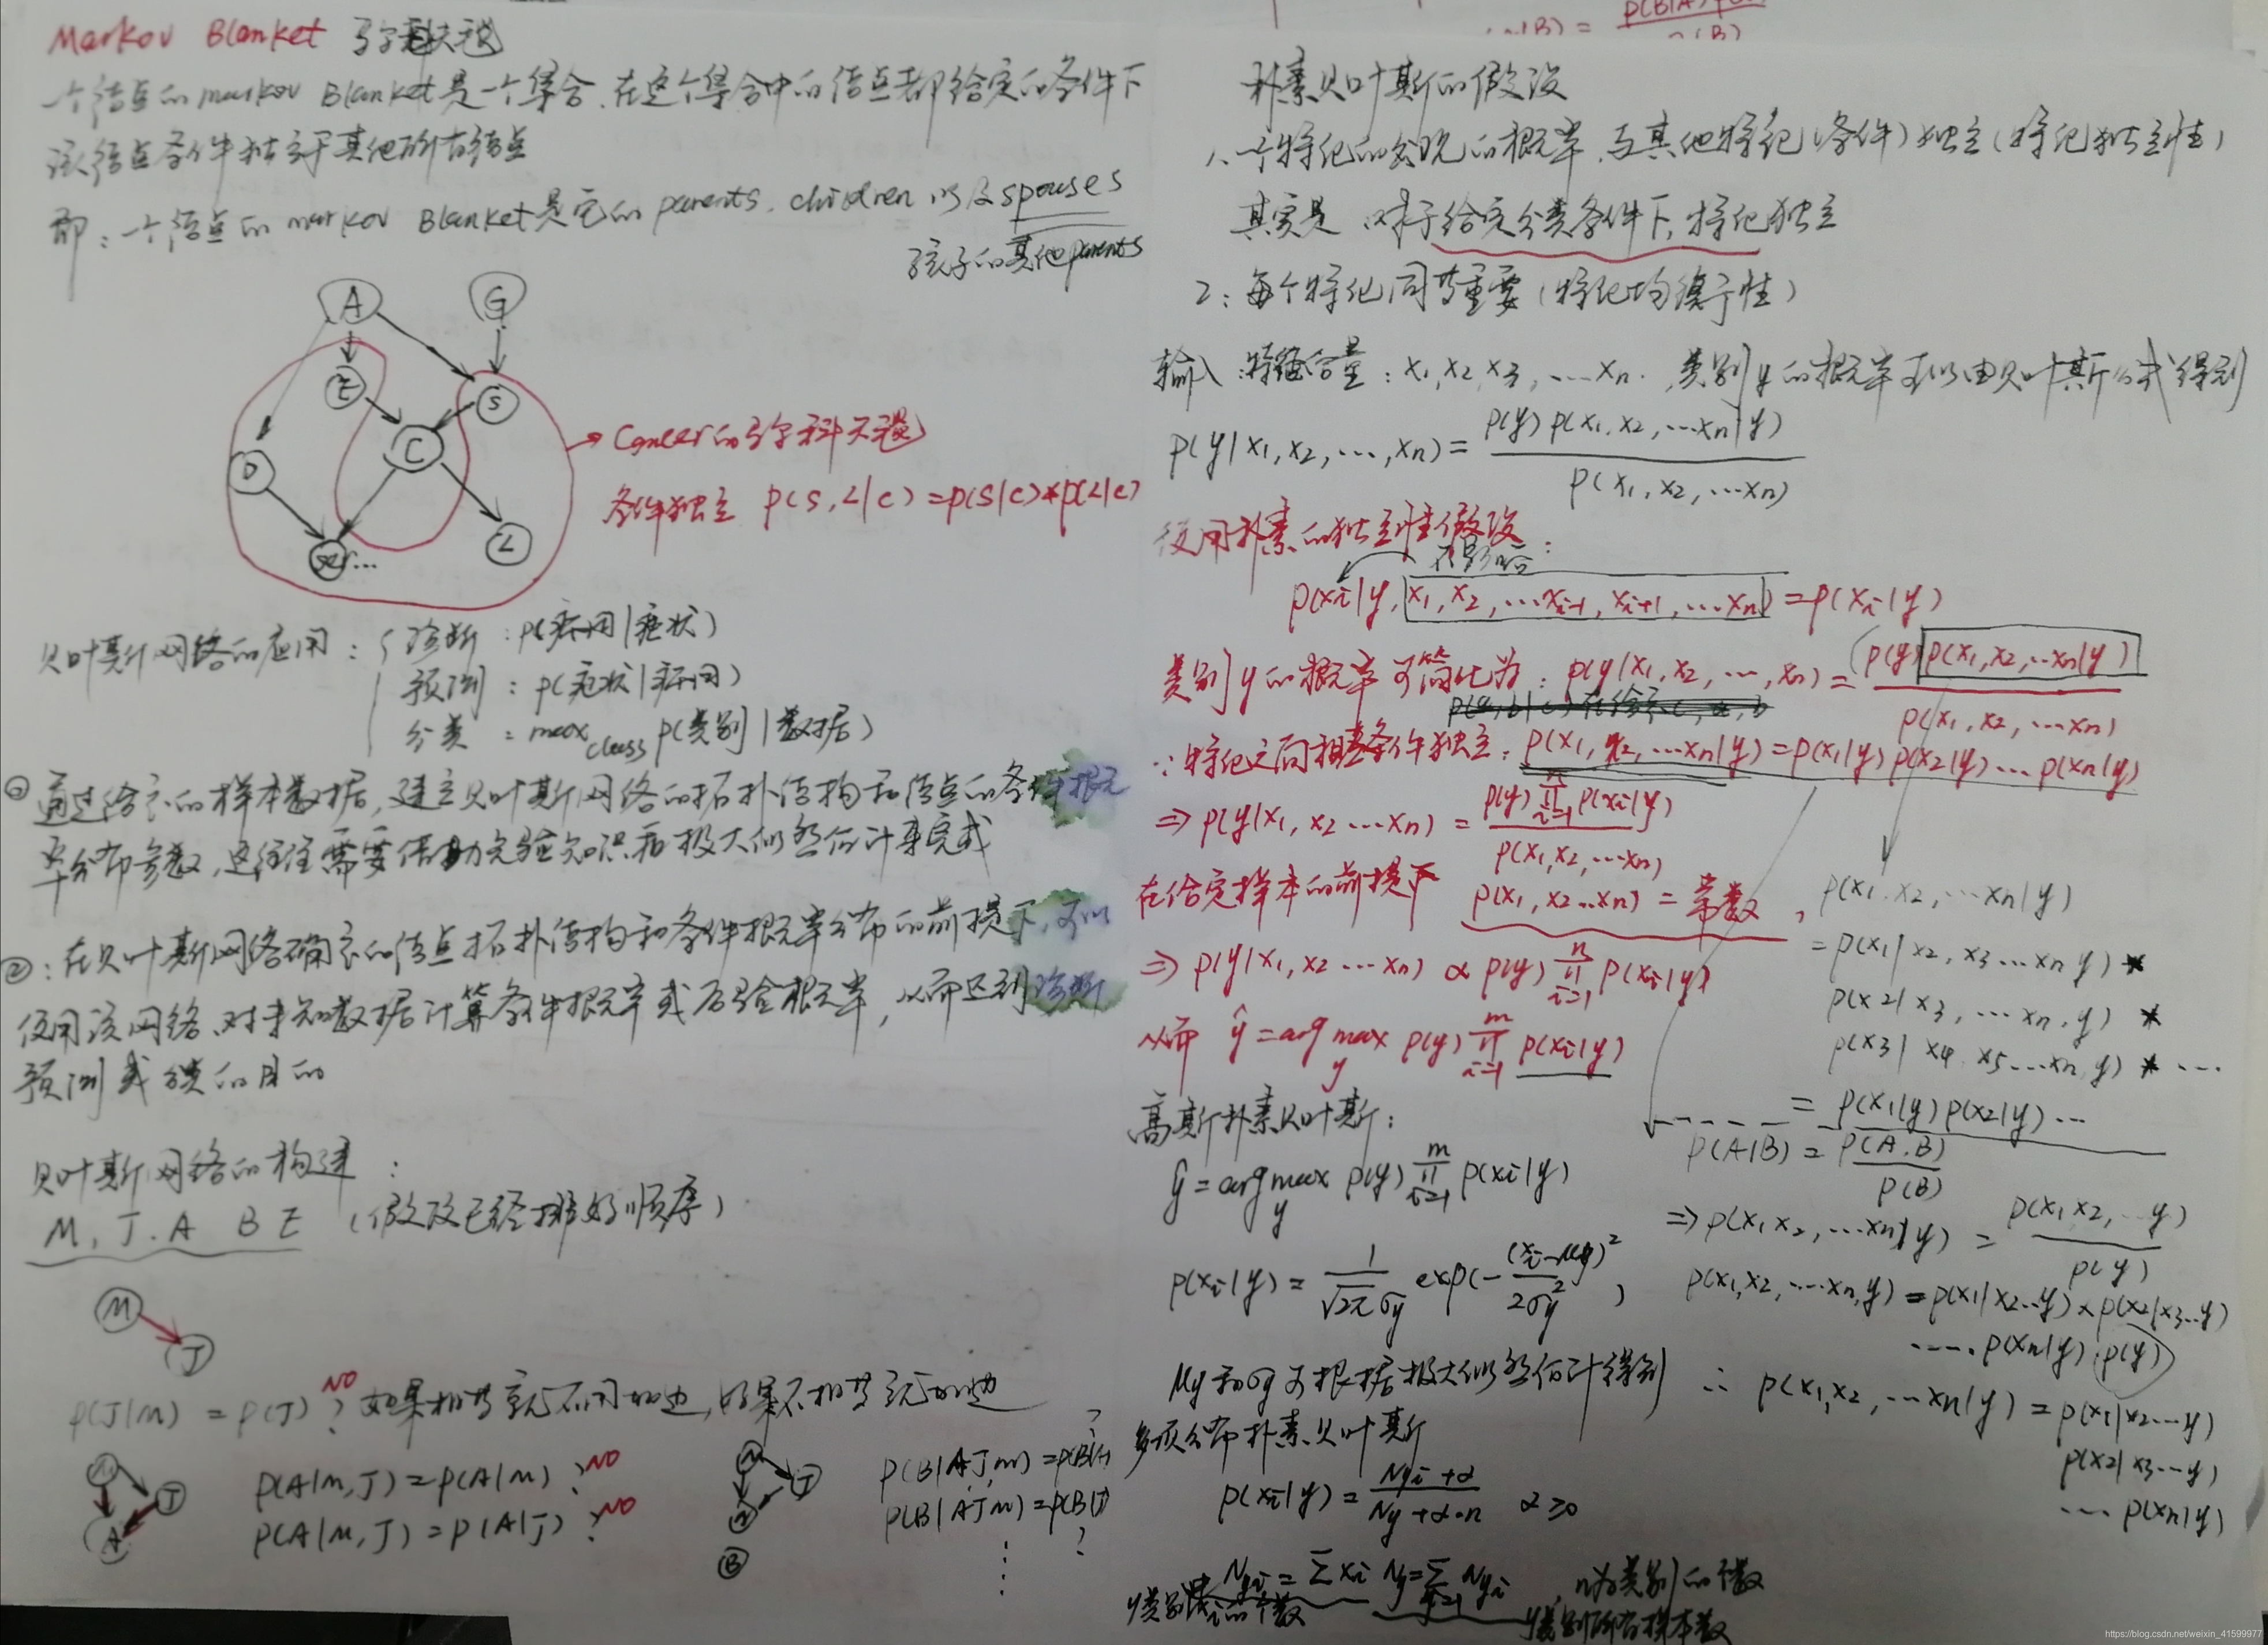 Markov Blanket 马尔科夫毯
一个结点的markov Blanket是一个集合,在这个集合中的结点都给定的条件下
该结点条件独立于其他所有结点
即:一个结点的markov Blanket是它的parents, children 以及spouses
孩子的其他parents
A G
E S
C
D
L
→ Cancer的马尔科夫毯
条件独立 P(S,L|C)=P(S|C)*P(L|C)
贝叶斯网络的应用:诊断:P(病因|症状)
预测:P(症状|病因)
分类:max class P(类别|数据)
① 通过给定的样本数据,建立贝叶斯网络的拓扑结构和结点的条件概
率分布参数,这往往需要借助先验知识和极大似然估计来完成
②:在贝叶斯网络确定的结点拓扑结构和条件概率分布的前提下,可以
使用该网络,对未知数据计算条件概率或后验概率,从而达到诊断
预测或分类的目的
贝叶斯网络的构建:
M, J, A B E (假设已经排好顺序)
M
J
P(J|M) = P(J)? NO 如果相等就不用加边,如果不相等就加边
M J A
P(A|M,J)=P(A|M)? NO
P(A|M,J)=P(A|J)? NO
M J
B
P(B|A,J,M)=P(B|
P(B|AJM)=P(B|J)
?
P(B|A)
P(B)
朴素贝叶斯的假设
1、一个特征的出现的概率,与其他特征(条件)独立(特征独立性)
其实是:对于给定分类条件下,特征独立
2:每个特征同等重要(特征均衡性)
输入:特征向量:x1,x2,x3,...xn. ,类别y的概率可以由贝叶斯公式得到
P(y|x1,x2,...,xn)= P(y)P(x1,x2,...xn|y) / P(x1,x2,...xn)
使用朴素的独立性假设:
不影响
P(xi|y,x1,x2,...xi-1,xi+1,...xn)=P(xi|y)
类别y的概率可简化为:P(y|x1,x2,...,xn)= P(y)P(x1,x2,...xn|y) / P(x1,x2,...xn)
∵特征之间相互条件独立:P(x1,x2,...xn|y)=P(x1|y)P(x2|y)...P(xn|y)
⇒ P(y|x1,x2...xn) = P(y)∏(i=1,n)P(xi|y) / P(x1,x2,...xn)
在给定样本的前提下 P(x1,x2...xn)=常数,
⇒ P(y|x1,x2...xn) ∝ P(y)∏(i=1,n)P(xi|y)
从而 ŷ=arg max y P(y)∏(i=1,m)P(xi|y)
P(x1,x2,...xn|y)
=P(x1|x2,x3...xn y) *
P(x2|x3,...xn,y) *
P(x3|x4,x5...xn,y) * ...
= P(x1|y)P(x2|y)...
高斯朴素贝叶斯:
ŷ=arg max y P(y)∏(i=1,m)P(xi|y)
P(xi|y) = 1/(√2π σy) exp(-(xi-μy)²/2σy²)
μy和σy可根据极大似然估计得到
P(A|B)= P(A,B)/P(B)
⇒P(x1x2,...xn|y) = P(x1x2,...y)/P(y)
P(x1,x2,...xn,y)=P(x1|x2...y)×P(x2|x3...y)
....P(xn|y)·P(y)
∴ P(x1,x2,...xn|y)=P(x1|x2...y)
P(x2|x3...y)
... P(xn|y)
多项分布朴素贝叶斯
P(xi|y)= (Nyi+α)/(Ny+α·n) α≥0
Nyi=∑xi Ny=∑Nyi ,n为类别的个数
y类别 i的个数 y类别所有样本数
https://blog.csdn.net/weixin_41599977